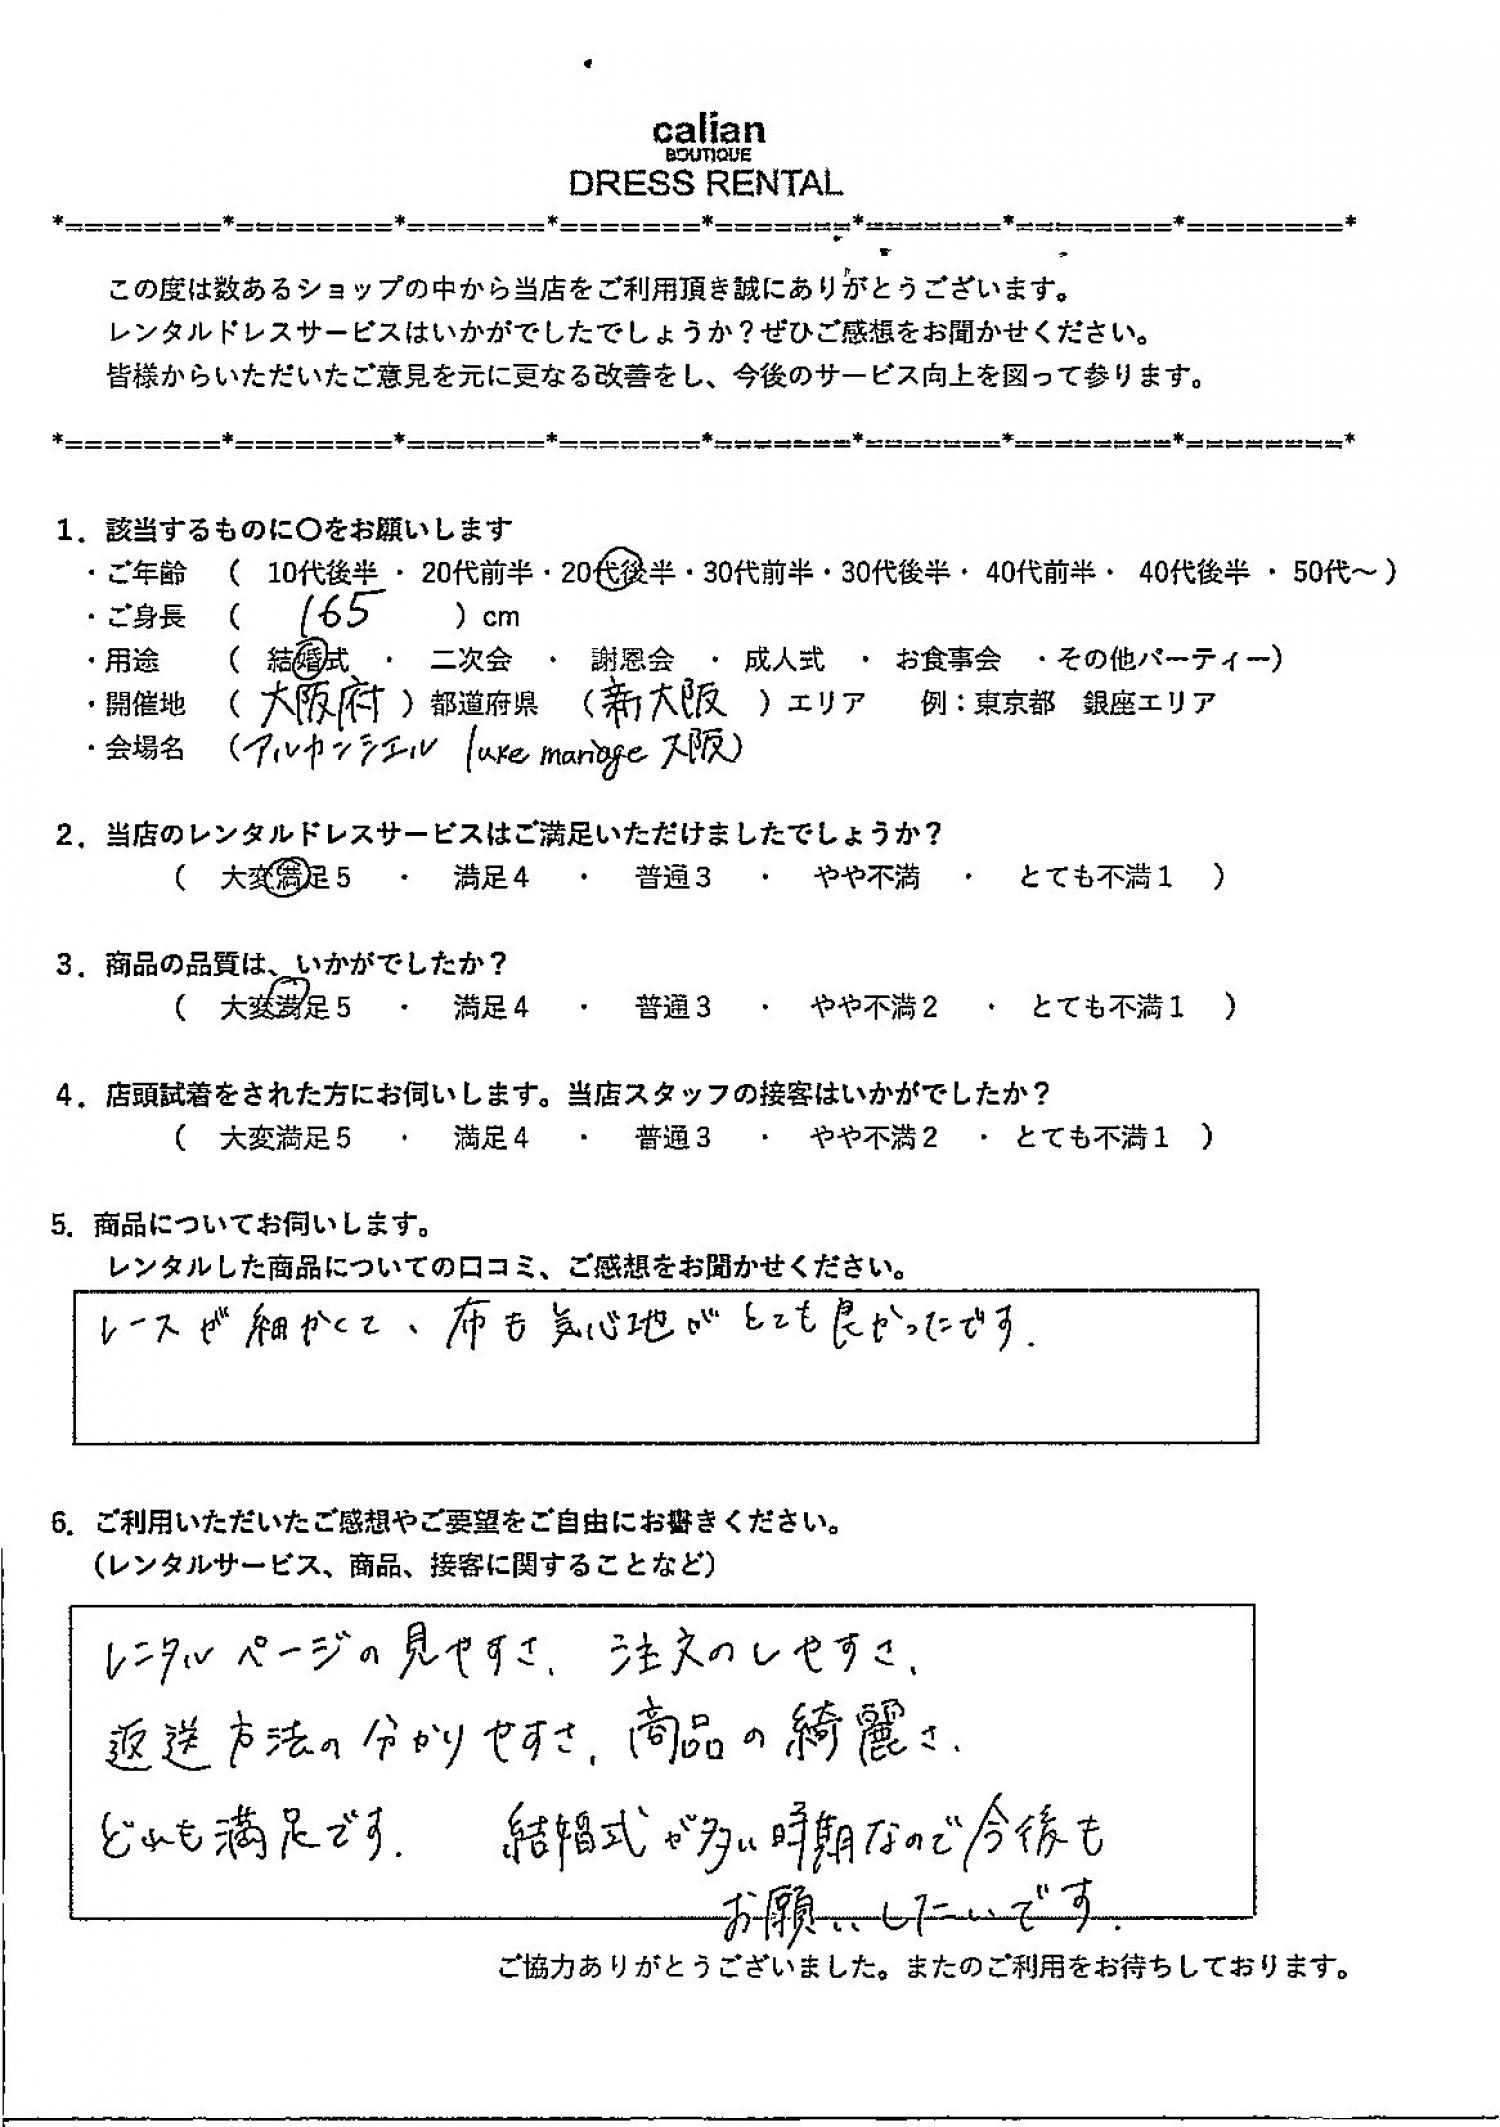 calian
BOUTIQUE
DRESS RENTAL
*========*========*=======*=======*=======*=======*========*========*
この度は数あるショップの中から当店をご利用頂き誠にありがとうございます。
レンタルドレスサービスはいかがでしたでしょうか？ぜひご感想をお聞かせください。
皆様からいただいたご意見を元に更なる改善をし、今後のサービス向上を図って参ります。
*========*========*=======*=======*=======*=======*========*========*
1．該当するものに〇をお願いします
・ご年齢 （ 10代後半 ・ 20代前半・20代後半・30代前半・30代後半・ 40代前半・ 40代後半 ・ 50代～）
・ご身長 （ 165 ）cm
・用途 （ 結婚式 ・ 二次会 ・ 謝恩会 ・ 成人式 ・ お食事会 ・その他パーティー）
・開催地 （ 大阪府 ）都道府県 （ 新大阪 ）エリア 例：東京都 銀座エリア
・会場名 （アルカンシエル luxe mariage 大阪）
2．当店のレンタルドレスサービスはご満足いただけましたでしょうか？
（ 大変満足５ ・ 満足４ ・ 普通３ ・ やや不満 ・ とても不満１ ）
3．商品の品質は、いかがでしたか？
（ 大変満足５ ・ 満足４ ・ 普通３ ・ やや不満２ ・ とても不満１ ）
4．店頭試着をされた方にお伺いします。当店スタッフの接客はいかがでしたか？
（ 大変満足５ ・ 満足４ ・ 普通３ ・ やや不満２ ・ とても不満１ ）
5．商品についてお伺いします。
レンタルした商品についての口コミ、ご感想をお聞かせください。
レースが細かくて、布も着心地がとても良かったです.
6．ご利用いただいたご感想やご要望をご自由にお書きください。
（レンタルサービス、商品、接客に関することなど）
レンタルページの見やすさ、注文のしやすさ、
返送方法の分かりやすさ、商品の綺麗さ、
どれも満足です. 結婚式が多い時期なので今後も
お願いしたいです.
ご協力ありがとうございました。またのご利用をお待ちしております。